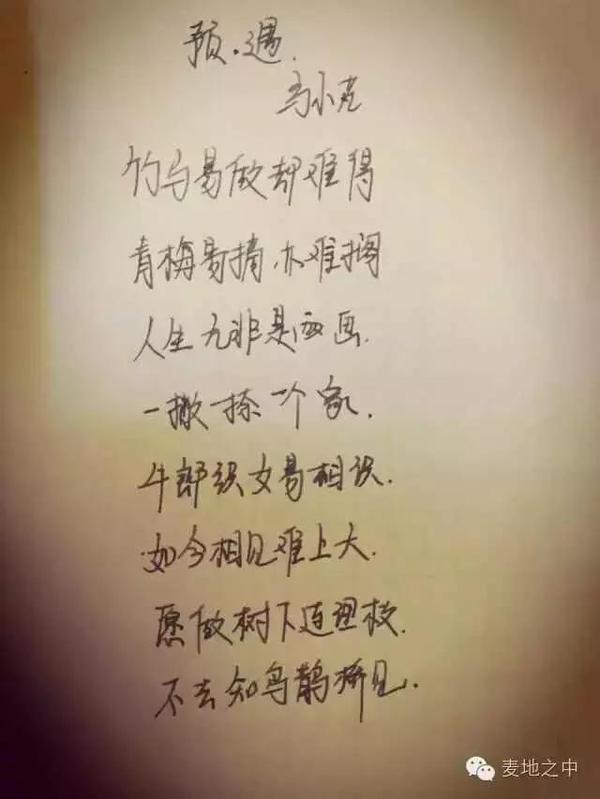 预·遇.
马小克
竹马易做却难得
青梅易摘亦难搁
人生无非是两画.
一撇一捺一个家.
牛郎织女易相识.
如今相见难上大.
愿做树下连理枝.
不去知鸟鹊桥见.
麦地之中